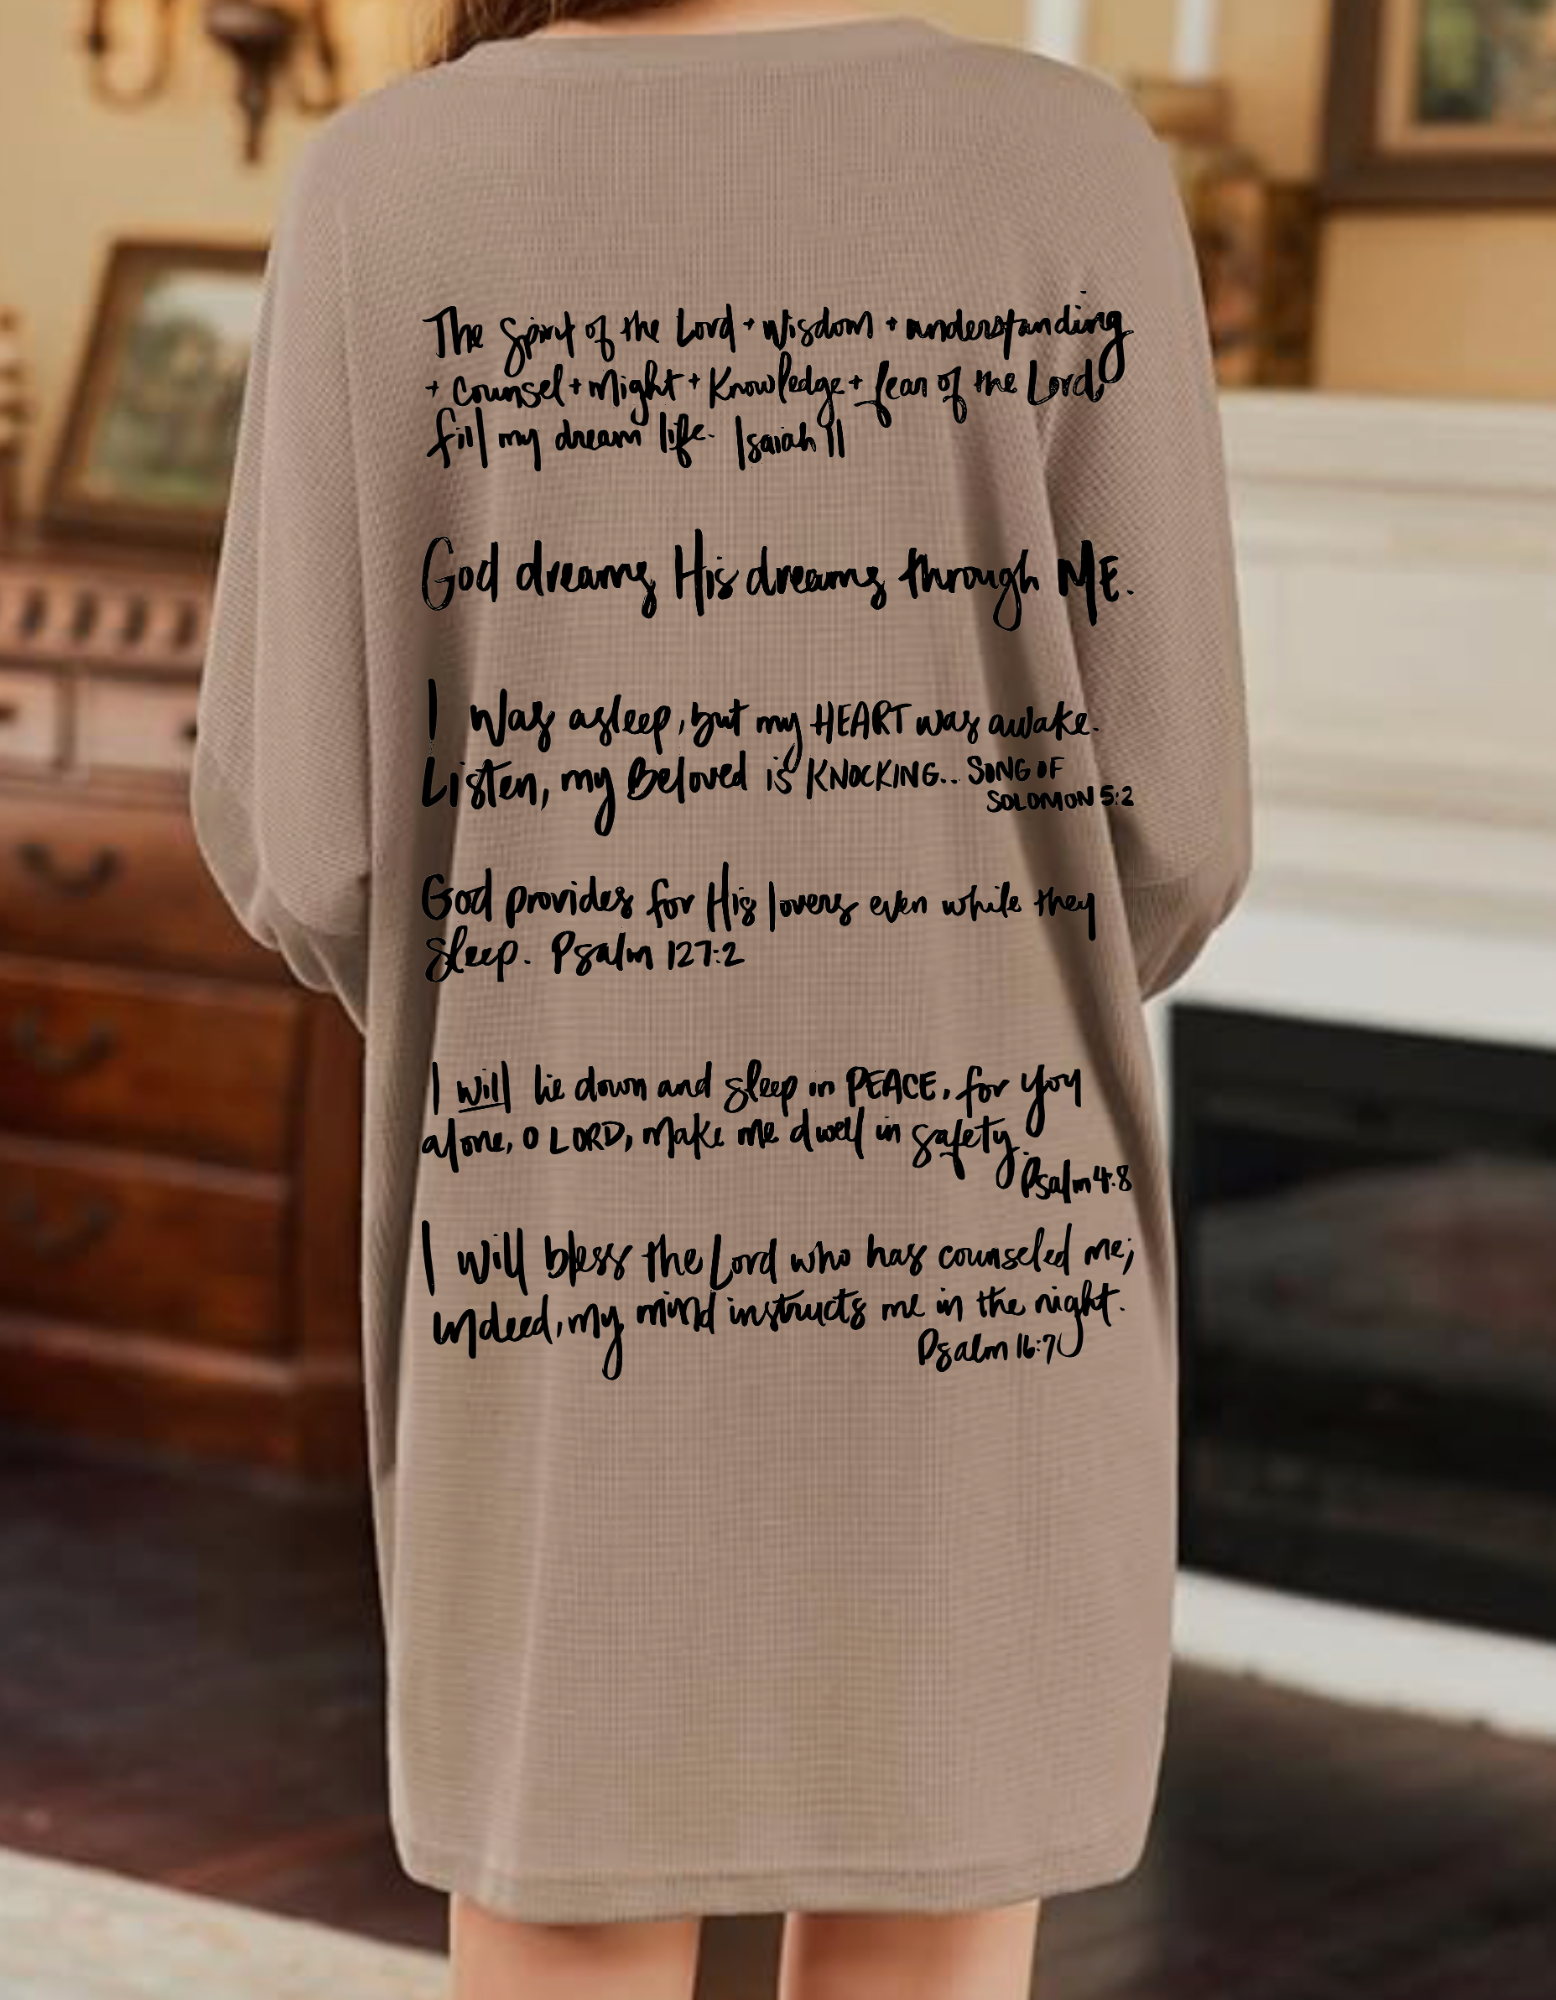 The Spirit of the Lord + Wisdom + understanding
+ Counsel + Might + Knowledge + fear of the Lord
fill my dream life. Isaiah 11
God dreams His dreams through ME.
I was asleep, but my HEART was awake.
Listen, my Beloved is KNOCKING.. SONG OF
SOLOMON 5:2
God provides for His lovers even while they
sleep. Psalm 127:2
I will lie down and sleep in PEACE, for you
alone, O LORD, make me dwell in safety.
Psalm 4:8
I will bless the Lord who has counseled me;
indeed, my mind instructs me in the night.
Psalm 16:7